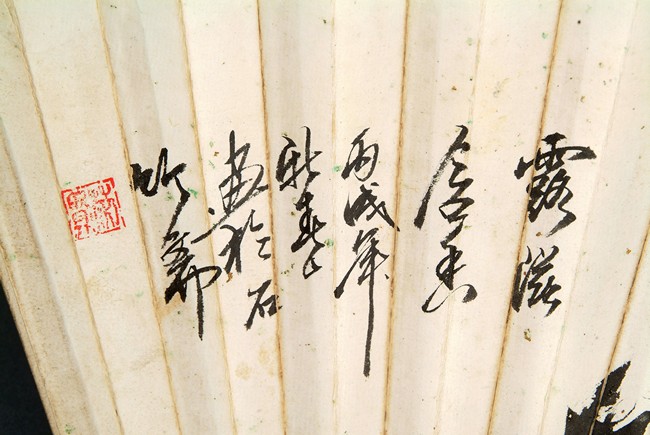 露滋
含香
丙戌年
新春
画於石
竹斋